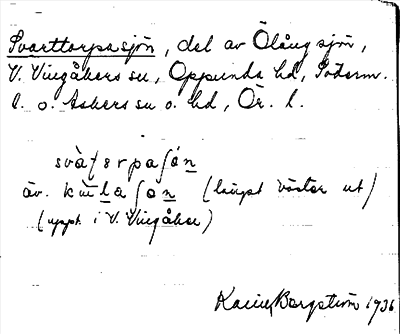 Svarttorpasjön, del av Ölångsjön,
V. Vingåkers sn, Oppunda hd, Söderm.
l. o. Askers sn o. hd, Ör. l.
svàʈɛrpaʃón
äv. kùlaʃon (längst väster ut)
(uppt. i V. Vingåker)
Bergström 1936